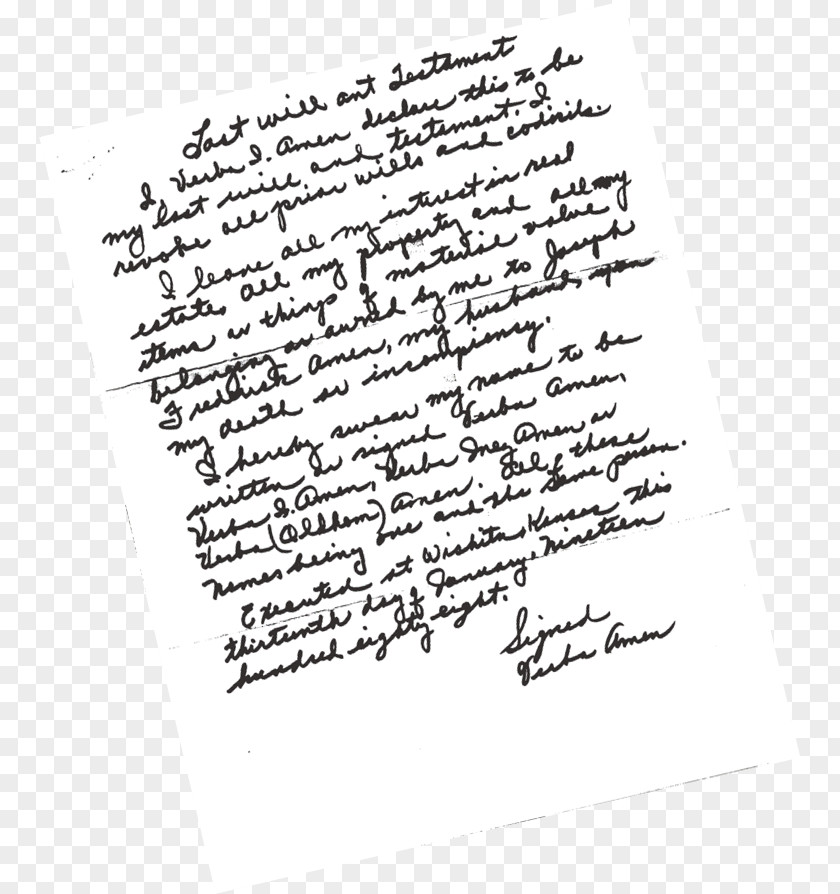 Last will ant Testament
I, Verba I. Amen declare this to be
my last will and testament. I
revoke all prior wills and codicils.
I leave all my interest in real
estate, all my property and all my
items or things of material value
belonging or owned by me to Joseph
Fredrick Amen, my husband, upon
my death or incompiensy.
I hereby swear my name to be
written or signed Verba Amen,
Verba I. Amen, Verba Inez Amen or
Verba (Oldhom) Amen. All of these
names being one and the same person.
Executed at Wishita, Kansas this
thirteenth day of January, Nineteen
hundred eighty eight.
Signed
Verba Amen